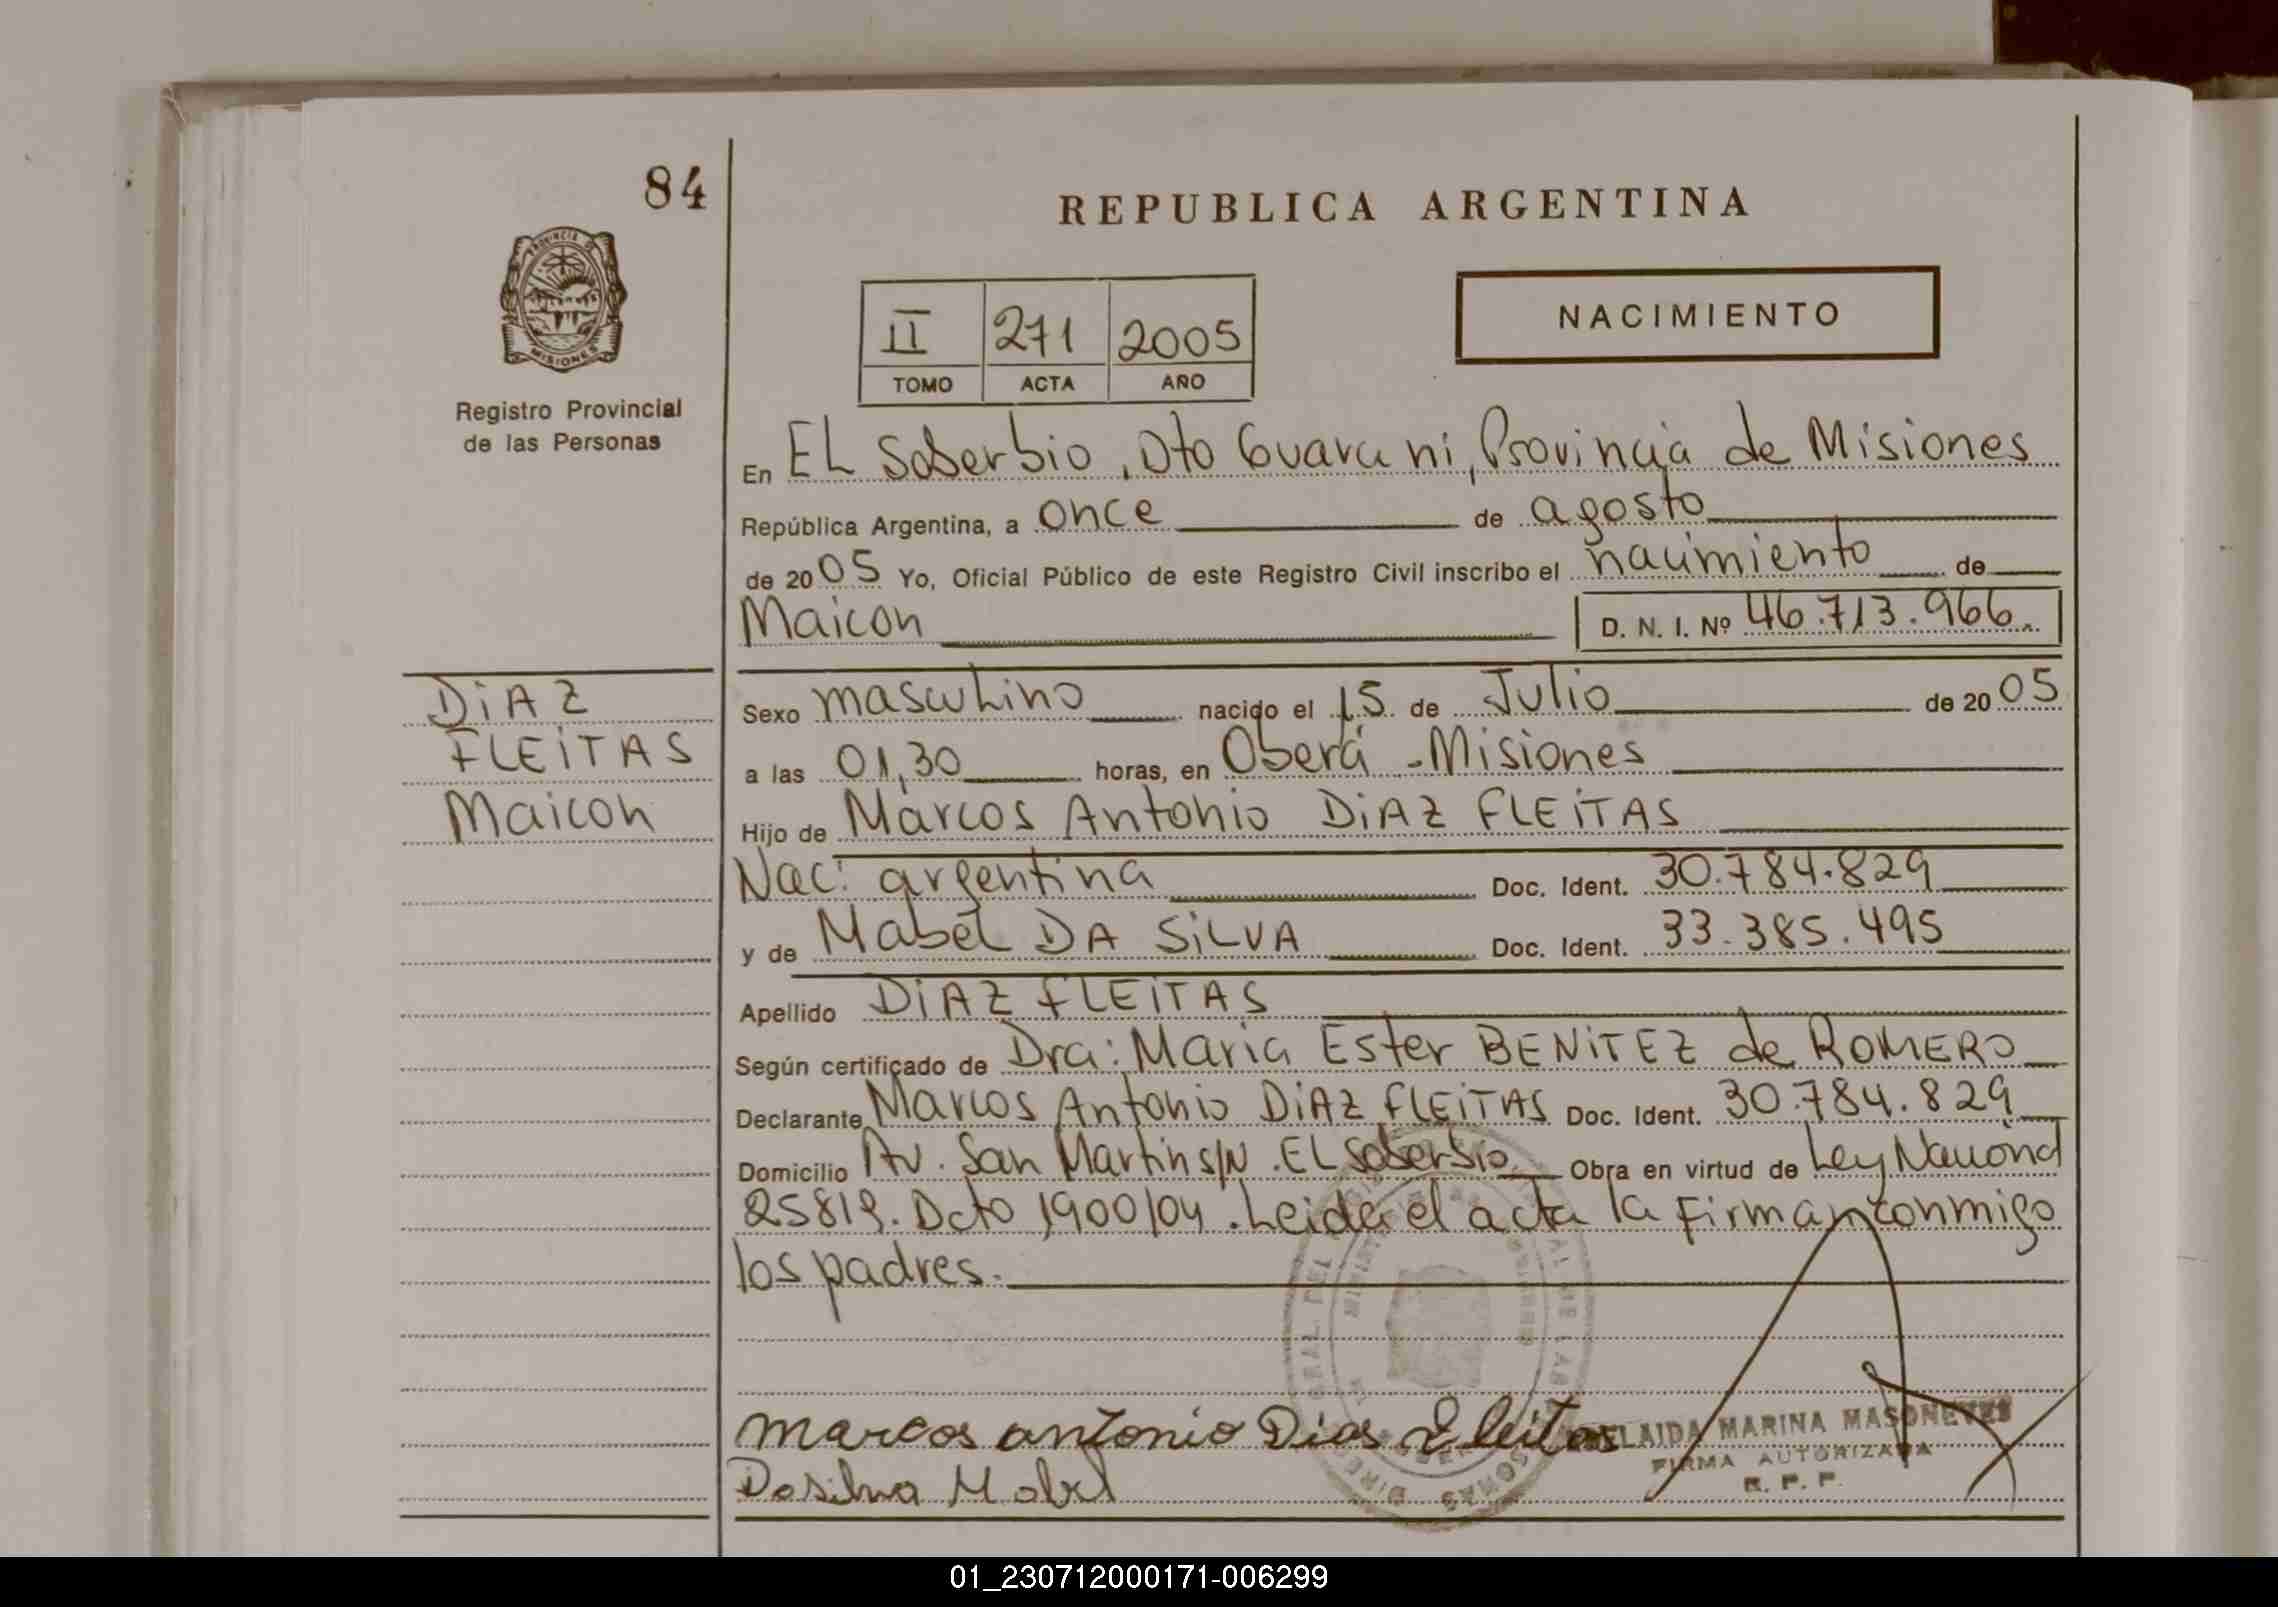 84
REPUBLICA ARGENTINA
PROVINCIA DE
MISIONES
Registro Provincial
de las Personas
II 271 2005
TOMO ACTA AÑO
NACIMIENTO
En EL Soberbio, Dto Guarani, Provincia de Misiones
República Argentina, a once de agosto
de 2005 Yo, Oficial Público de este Registro Civil inscribo el nacimiento de
Maicon D. N. I. Nº 46.713.966.
DiAZ
FLEiTAS
Maicon
Sexo masculino nacido el 15 de Julio de 2005
a las 01,30 horas, en Oberá - Misiones
Hijo de Marcos Antonio DiAZ FLEiTAS
Nac: argentina Doc. Ident. 30.784.829
y de Mabel DA SiLVA Doc. Ident. 33.385.495
Apellido DiAZ FLEiTAS
Según certificado de Dra: Maria Ester BENiTEZ de ROMERO
Declarante Marcos Antonio DiAZ FLEiTAS Doc. Ident. 30.784.829
Domicilio Av. San Martin S/N. EL Soberbio Obra en virtud de Ley Nacional
25819. Dcto 1900/04. Leida el acta la firman conmigo
los padres.
marcos antonio Dias Fleitas
Dasilva Mabel
ADELAIDA MARINA MASONEVES
FIRMA AUTORIZADA
R. P. P.
01_230712000171-006299